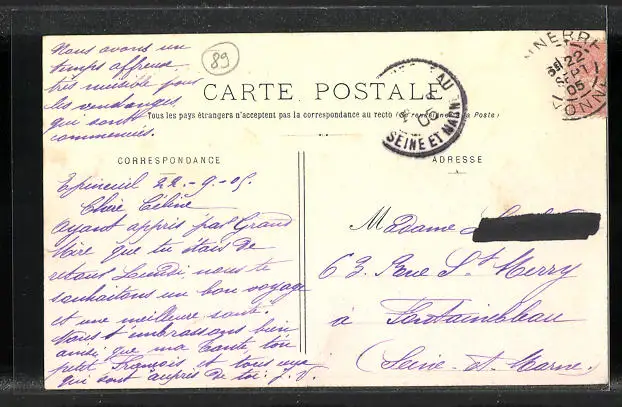 Nous avons un
temps affreux
très nuisible pour
les vendanges
qui sont
commencées.
89
CARTE POSTALE
Tous les pays étrangers n'acceptent pas la correspondance au recto (Se renseigner à la Poste)
CORRESPONDANCE
ADRESSE
Epineuil 22-9-05.
Chère Céline
Ayant appris par Grand
Mère que tu étais de
retour Lundi nous te
souhaitons un bon voyage
et une meilleure santé.
Nous t'embrassons bien
ainsi que ma tante ton
petit François et tous ceux
qui sont auprès de toi. J. V.
Madame
63 Rue St Merry
à Fontainebleau
(Seine-et-Marne.
NNERRE
22
SEPT
05
YONNE
EAU
05
SEINE ET MARNE